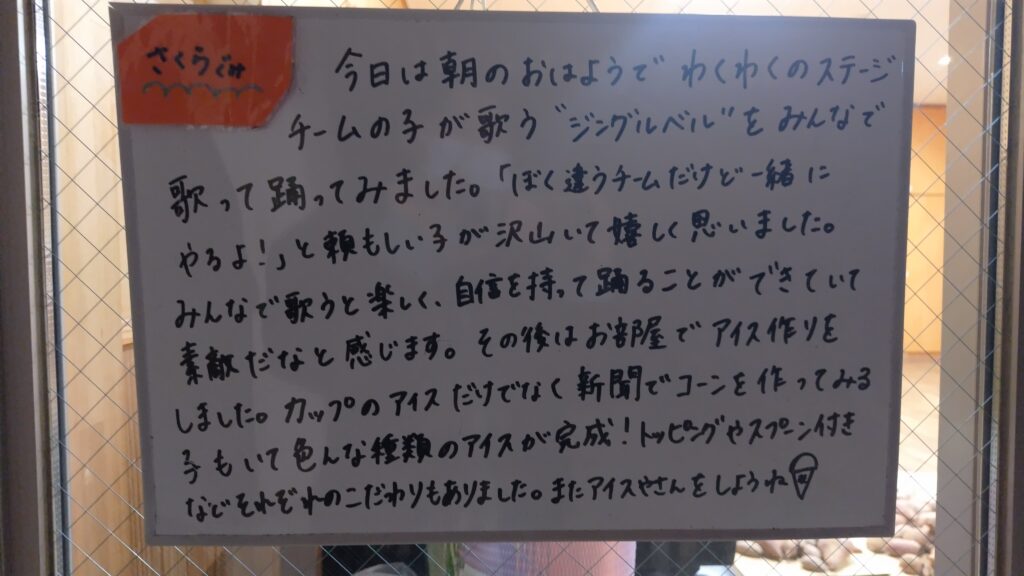 さくらぐみ
今日は朝のおはようで わくわくのステージ
チームの子が歌う"ジングルベル"をみんなで
歌って踊ってみました。「ぼく違うチームだけど一緒に
やるよ!」と頼もしい子が沢山いて嬉しく思いました。
みんなで歌うと楽しく、自信を持って踊ることができていて
素敵だなと感じます。その後はお部屋でアイス作りを
しました。カップのアイスだけでなく新聞でコーンを作ってみる
子もいて色んな種類のアイスが完成!トッピングやスプーン付き
などそれぞれのこだわりもありました。またアイスやさんをしようね